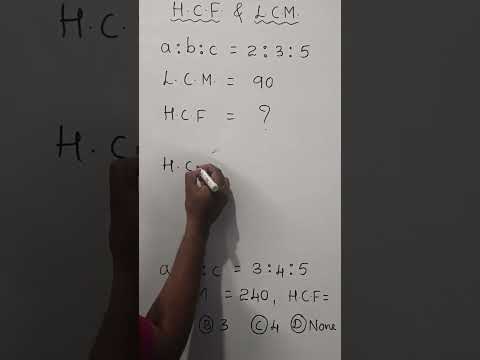 H.C.F & L.C.M.
a:b:c = 2:3:5
L.C.M. = 90
H.C.F = ?
H.C
a : c = 3:4:5
M = 240, H.C.F =
Ⓑ 3 Ⓒ 4 Ⓓ None